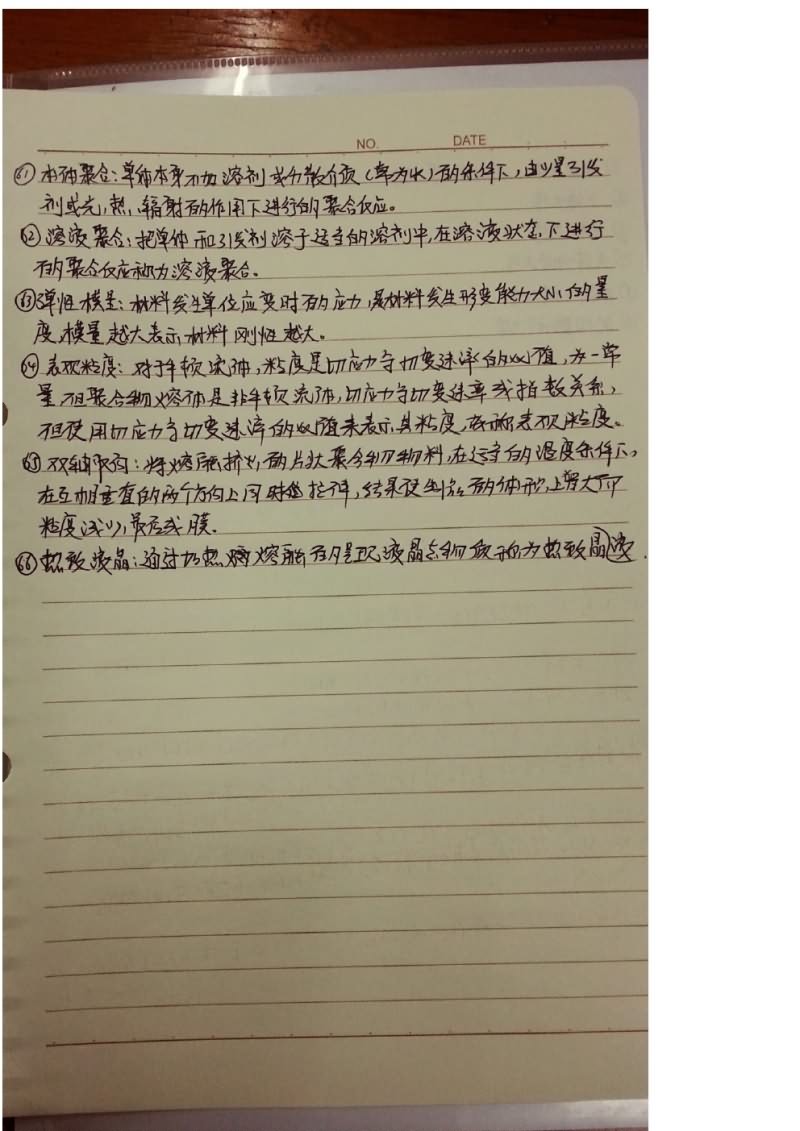 NO. DATE
61 本体聚合:单体本身不加溶剂或分散介质(常为水)的条件下,由少量引发
剂或光,热,辐射的作用下进行的聚合反应。
62 溶液聚合:把单体和引发剂溶于适当的溶剂中,在溶液状态下进行
的聚合反应称为溶液聚合。
63 弹性模量:材料发生单位应变时的应力,是材料发生形变能力大小的量
度,模量越大表示材料刚性越大。
64 表观粘度:对于牛顿流体,粘度是切应力与切变速率的比值,为一常
量,但聚合物熔体是非牛顿流体,切应力与切变速率成指数关系,
但使用切应力与切变速率的比值来表示其粘度,故称表观粘度。
65 双轴取向:将熔融挤出的片状聚合物物料,在适当的温度条件下,
在互相垂直的两个方向上同时拉伸,结果使制品的体形上增大而
粘度减少,最后成膜。
66 热致液晶:通过加热熔融的呈现液晶态物质称为热致晶液.